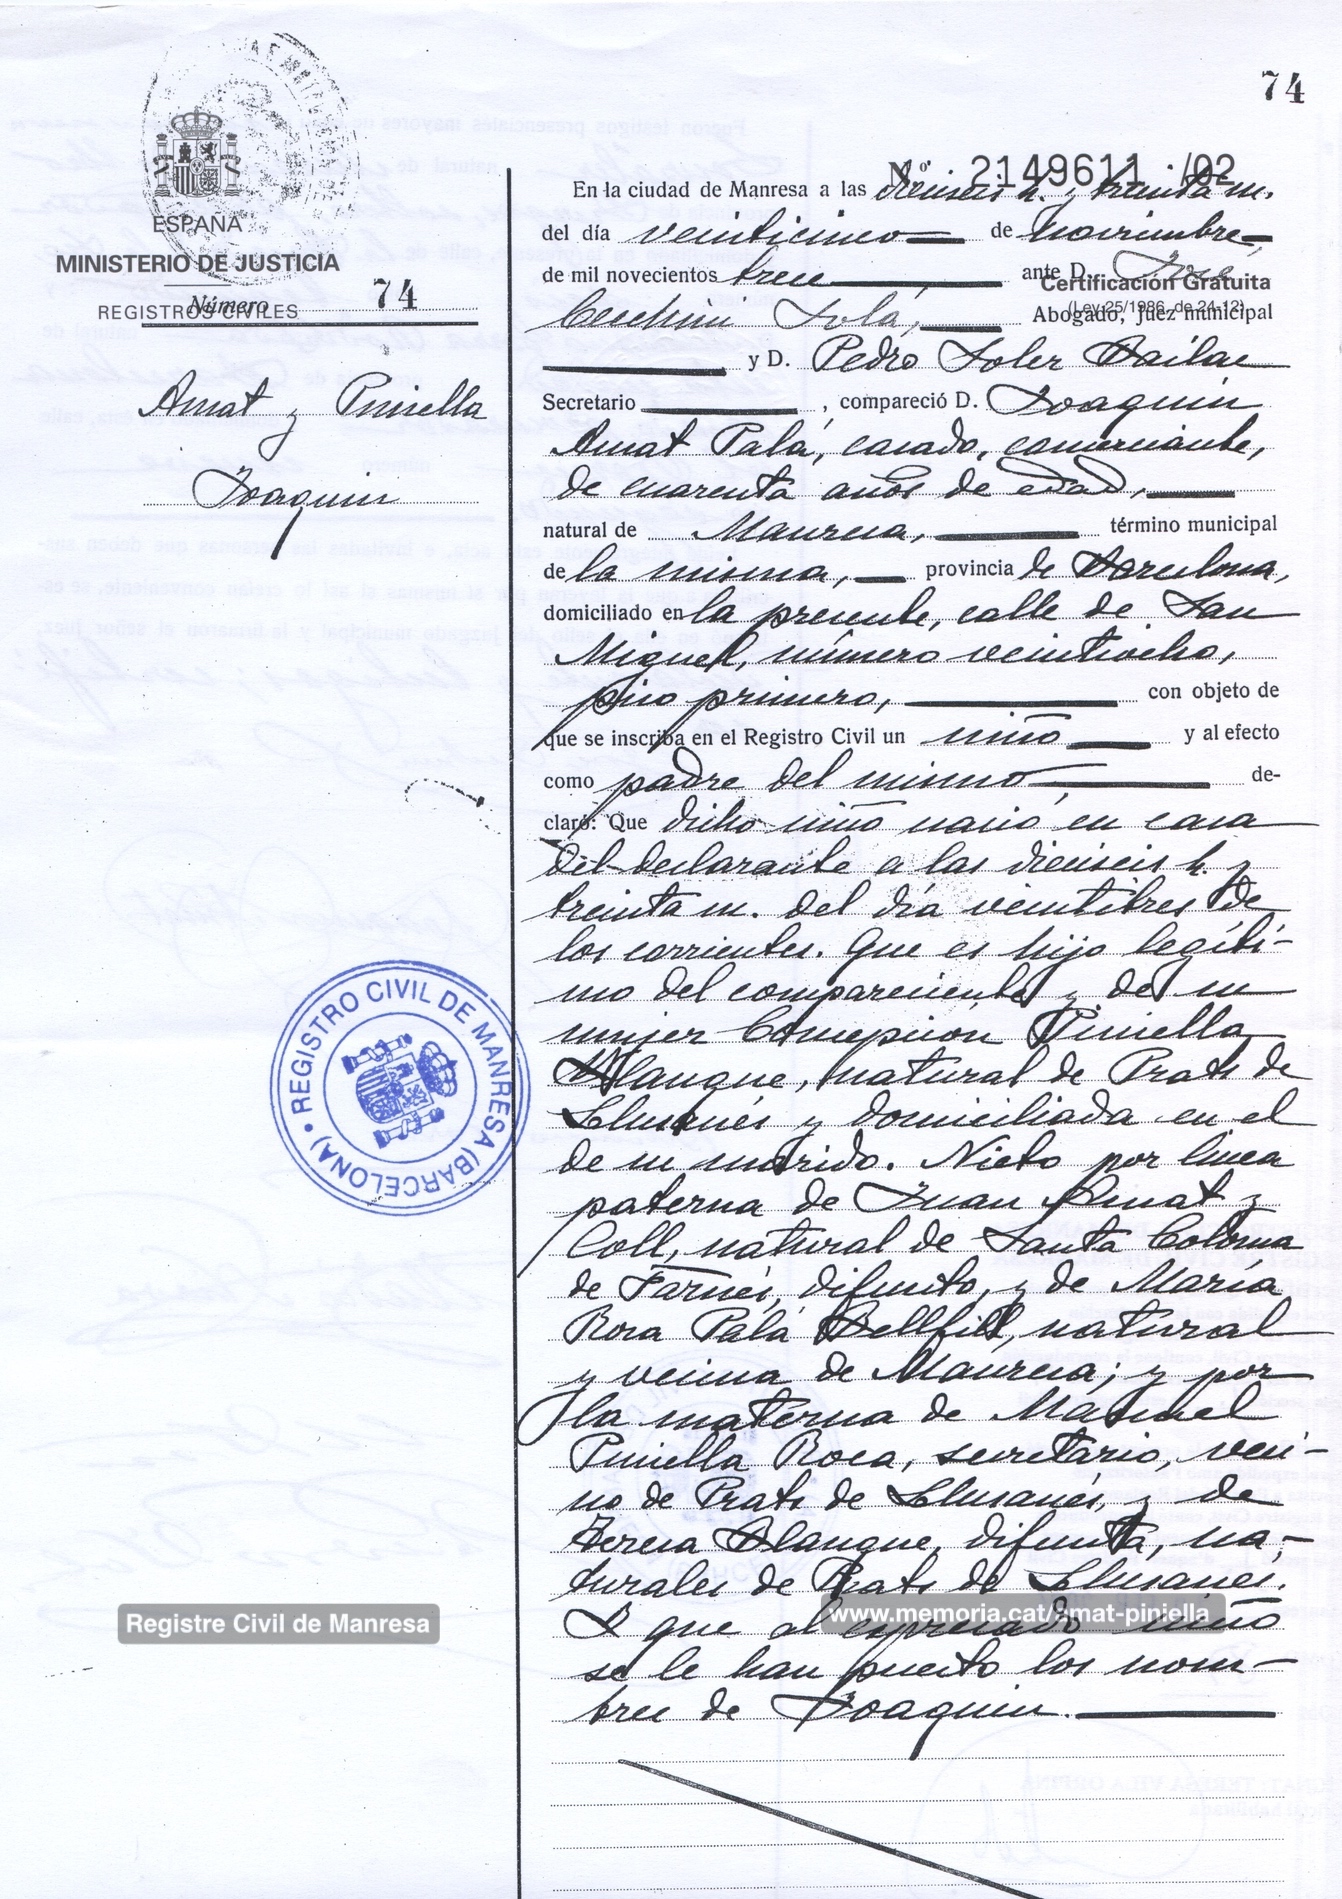 74
Nº 2149611 /02
ESPAÑA
MINISTERIO DE JUSTICIA
REGISTROS CIVILES
Número 74
Amat y Piniella
Joaquin
Certificación Gratuita
(Ley 25/1986, de 24-12)
En la ciudad de Manresa a las dieciseis h. y treinta m.
del día veinticinco de Noviembre
de mil novecientos trece ante D. José
Cerchini Solá, Abogado, juez municipal
y D. Pedro Soler
Secretario , compareció D. Joaquin
Amat Palá, casado, comerciante,
de cuarenta años de edad,
natural de Manresa, término municipal
de la misma, provincia de Barcelona,
domiciliado en la presente, calle de San
Miguel, número veintiocho,
piso primero, con objeto de
que se inscriba en el Registro Civil un niño y al efecto
como padre del mismo de-
claró: Que dicho niño nació en casa
del declarante a las dieciseis h. y
treinta m. del día veintitres de
los corrientes. Que es hijo legíti-
mo del compareciente y de su
mujer Concepción Piniella
Blanque, natural de Prats de
Llusanés y domiciliada en el
de su marido. Nieto por linea
paterna de Juan Amat y
Coll, natural de Santa Coloma
de Farnés, difunto, y de Maria
Rosa Palá Bellfill, natural
y vecina de Manresa; y por
la materna de Manuel
Piniella Roca, secretario, veci-
no de Prats de Llusanés, y de
Teresa Blanque, difunta, na-
turales de Prats de Llusanés.
Y que al expresado niño
se le han puesto los nom-
bres de Joaquin.
REGISTRO CIVIL DE MANRESA (BARCELONA)
Registre Civil de Manresa
www.memoria.cat/amat-piniella